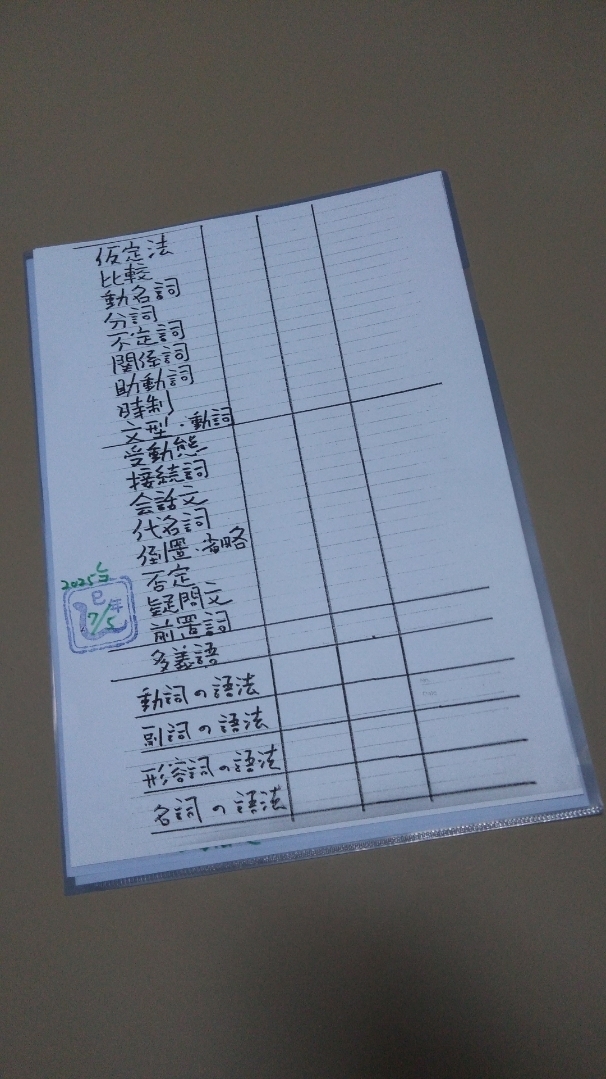 仮定法
比較
動名詞
分詞
不定詞
関係詞
助動詞
時制
文型・動詞
受動態
接続詞
会話文
代名詞
倒置・省略
否定
疑問文
前置詞
多義語
動詞の語法
副詞の語法
形容詞の語法
名詞の語法
2025年
巳年
7/5